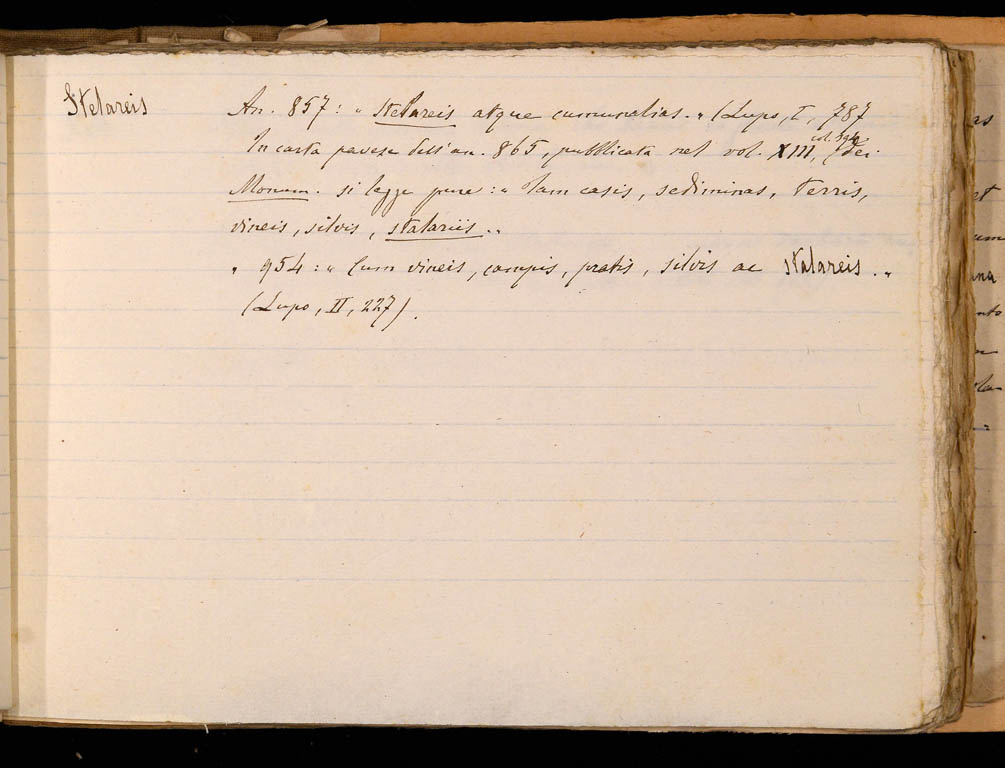 Stelareis
An. 857: „ Stelareis atque cumunalias. „ (Lupo, I, 787
In carta pavese dell'an. 865, pubblicata nel vol. XIII, col. dei
Monum. si legge pure: „ tam casis, sediminas, terris,
vineis, silvis, stalariis „.
„ 954: „ Cum vineis, campis, pratis, silvis ac stalareis. „
(Lupo, II, 227).